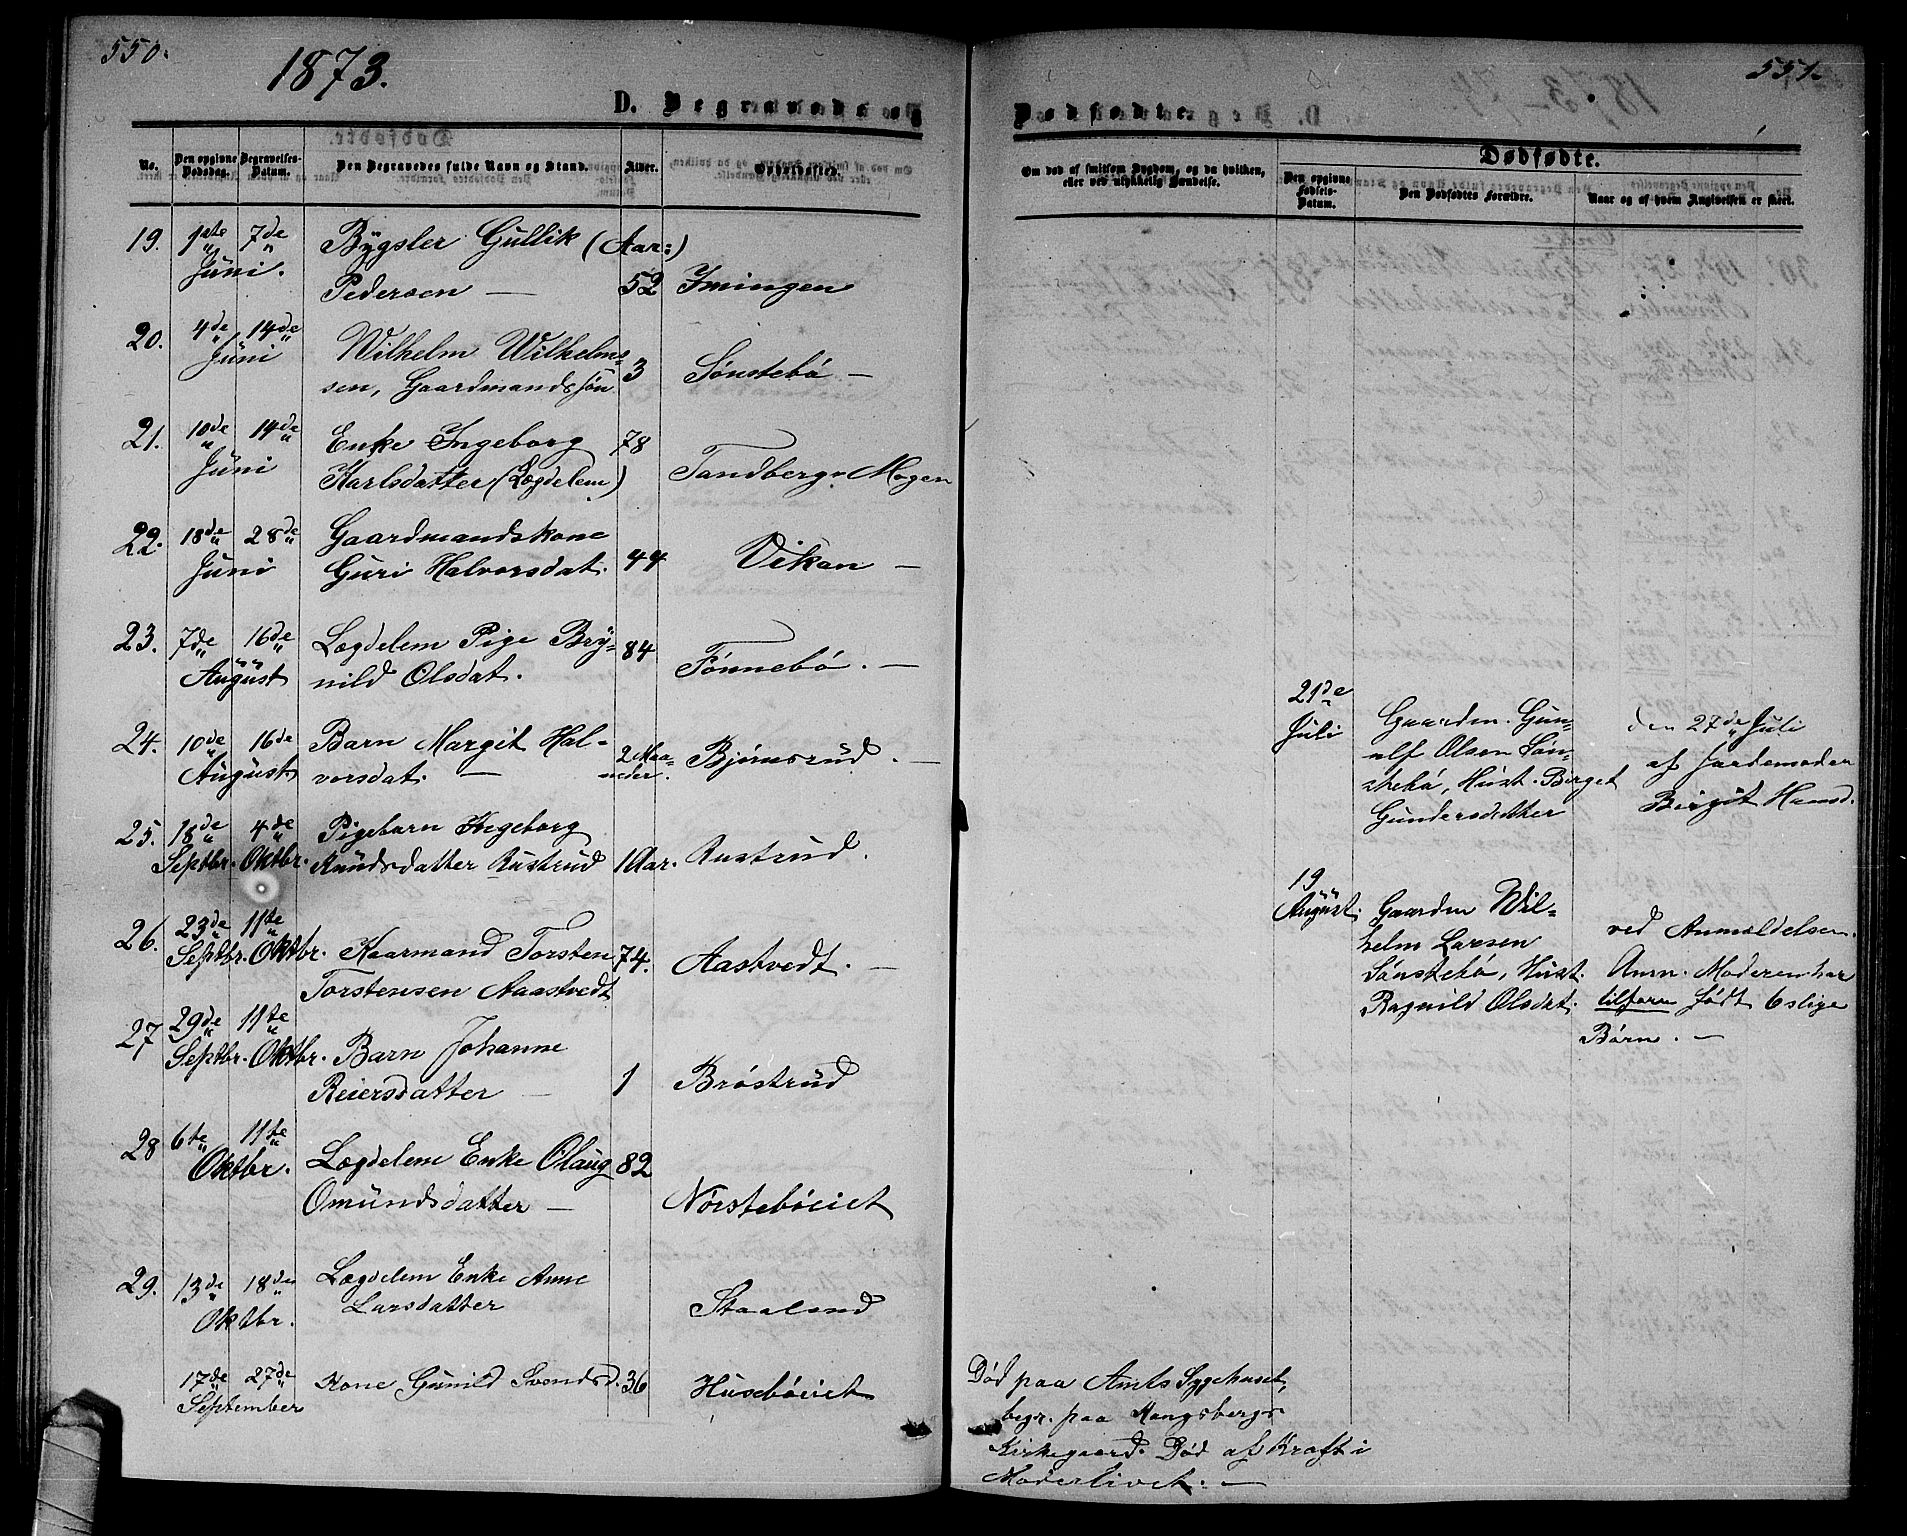 550.
1873.
D. Begravede og
No.
Den opgivne Dødsdag.
Begravelses-Datum.
Den Begravedes fulde Navn og Stand.
Alder.
Opholdssted.
19. 1ste Juni. 7de Bygsler Gullik (Aar:)
Pedersen — 52 Imingen
20. 4de Juni 14de Wilhelm Wilhelm-
sen, Gaardmandssøn 3 Sønstebø —
21. 10de Juni 14de Enke Ingeborg 78
Karlsdatter (Lægdelem) Tandberg Mogen
22. 18de Juni 28de Gaardmandskone
Guri Halvorsdat. 44 Vikan —
23. 7de August 16de Lægdelem Pige Bry- 84
nild Olsdat. Tønnebø. —
24. 10de August 16de Barn Margit Hal- 2 Maa-
vorsdat. — neder. Bjørnsrud. —
25. 18de Septbr. 4de Oktbr. Pigebarn Ingeborg
Knudsdatter Rustrud 1 Aar. Rustrud.
26. 23de Septbr. 11te Oktbr. Kaarmand Torsten 74. Aastvedt. —
Torstensen Aaastvedt
27 29de Septbr. 11te Oktbr. Barn Johanne
Reiersdatter — 1 Brøstrud
28 6te 11te Oktbr. Lægdelem Enke Olaug 82
Omundsdatter — Nørstebøeiet
29. 13de Oktbr. 18de Lægdelem Enke Anne
Larsdatter Staaland
17de 27de September Kone Gunild Svendsd. 36 Husebøeiet
551.
Dødfødte.
Om død af smitsom Sygdom, og da hvilken,
eller ved ulykkelig Hændelse.
Dødfødte.
Den opgivne Fødsels-Datum.
Den Dødfødtes Forældre.
Naar og af hvem Angivelsen er skeet.
21de Juli
Gaardm. Gun-
ulf Olsen Søn-
stebø, Hust. Birget
Gundersdatter
den 27de Juli
af Jordemoder
Birgit Hansd.
19 August.
Gaardm Wil-
helm Larsen
Sønstebø, Hust.
Ragnild Olsdat.
ved Anmeldelsen.
Anm. Moderen har
tilforn født 6 slige
Børn. —
Død paa Amts Sygehuset,
begr. paa Kongsbergs
Kirkegaard. Død af Kræft i
Moderlivet. —